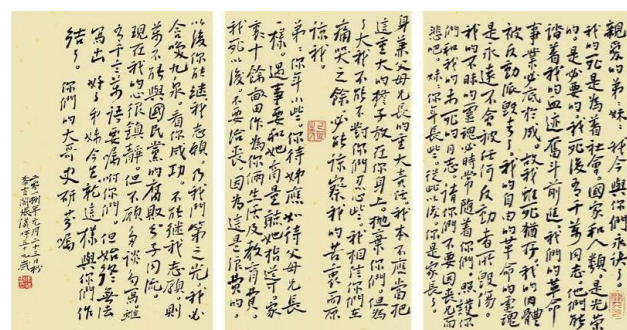 親爱的弟:妹:我今與你們永诀了
我的死是为着社会、國家和人類是光荣
的是必要的。我死後有千万同志他們能
踏着我的血迹奮斗前進我們的革命
事業必底於成。故我雖死犹存。我的肉体
被反動派毁去了,我的自由的革命的灵魂
是永遠不会被任何反動者所毁傷。
我的不昧的灵魂必時常随着你們,照護你
們和我的未死的同志,请你們不要因丧兄而
悲吧。妹:你年長些,從此以後你是家長
身兼父母兄長的重大責任。我本不應當把
這重大的担子放在你身上。抛棄你們。但為
了大我不能不對你們忍心些。我相信你們在
痛哭之余,必能谅察我的苦衷而原
谅我。
弟:你年小些,你待姊應如待父母兄長
一樣。遇事要和她商量聽她指導。家
裏十餘畝田作為你俩生活及教育費。
我死以後。不要治丧。因為這是浪費的。
以後你能继我志願。乃我門第之光。我必
含笑九泉。看你成功。不能继我志願。則
萬不能與國民黨的腐敗分子同流。
現在我的心很镇静。但不願多谈多寫。雖
有千言萬語要嘱咐你們。但始終無法
寫出。好了弟妹今生就這樣與你們作
结了。你們的大哥史研芬嘱
二零一捌年九月二十三日於